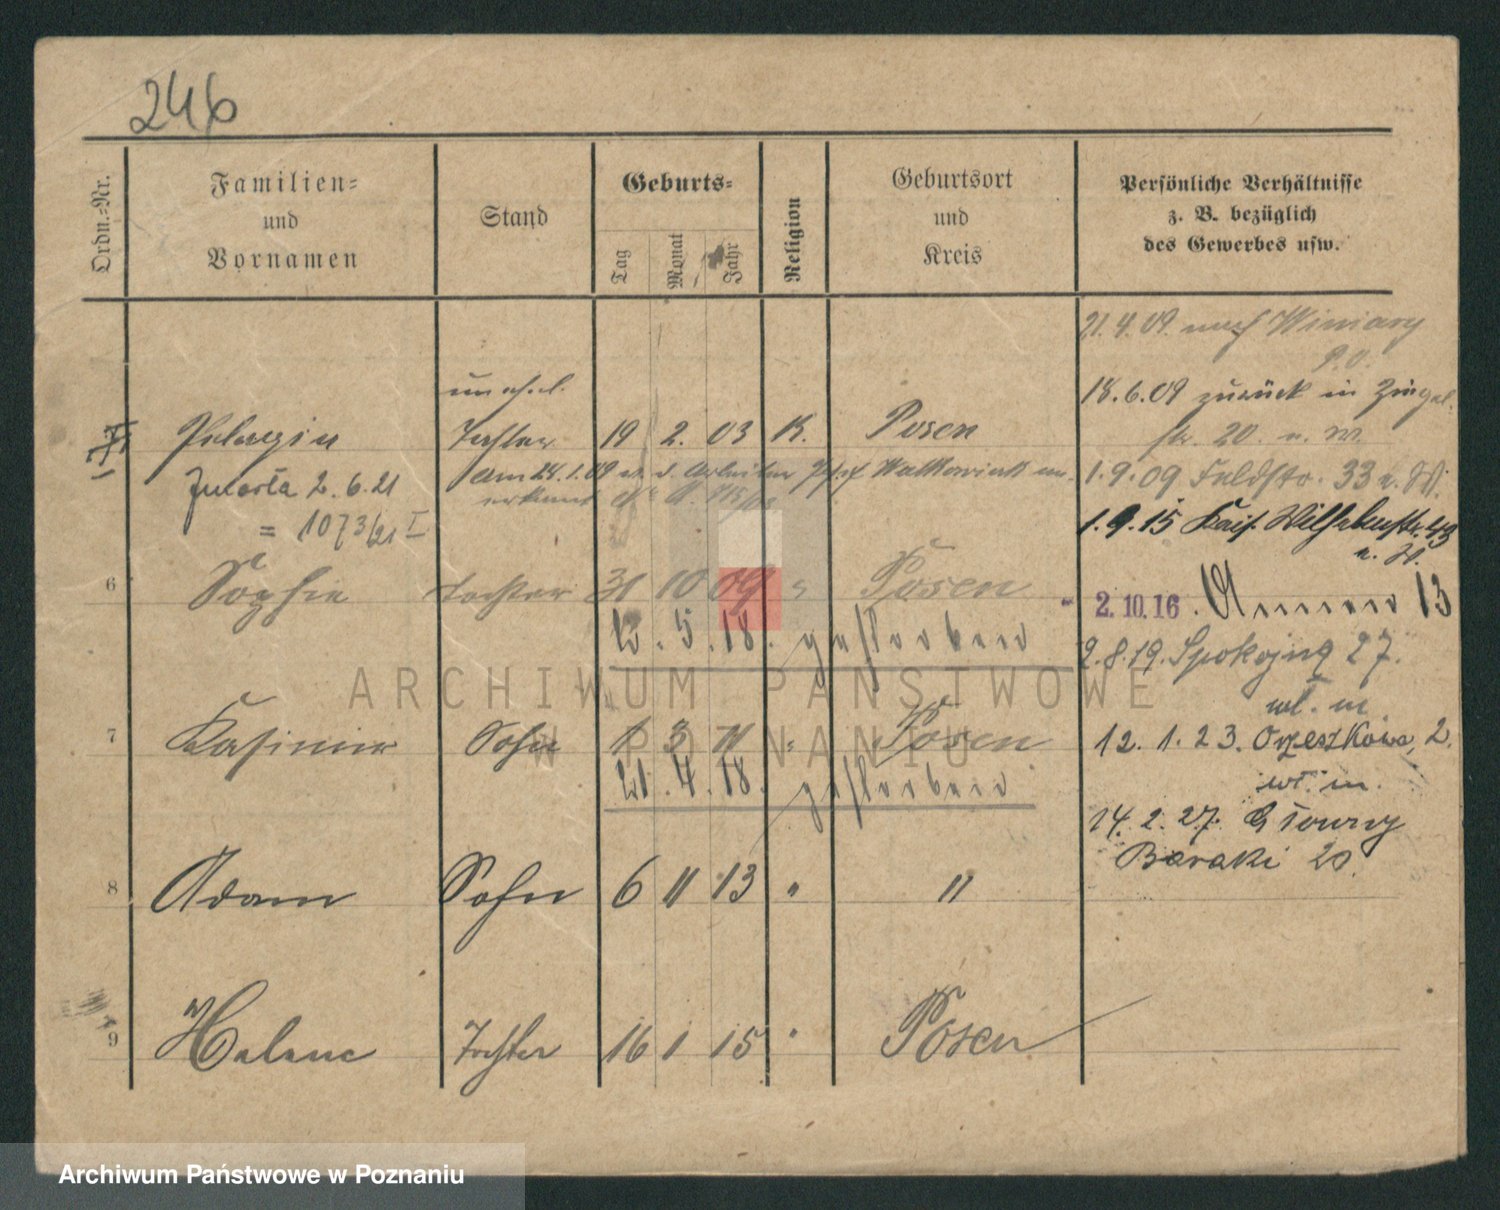 246
Ordn.=Nr.
Familien=
und
Vornamen
Stand
Geburts=
Tag
Monat
Jahr
Religion
Geburtsort
und
Kreis
Persönliche Verhältnisse
z. B. bezüglich
des Gewerbes usw.
21.4.09. nach Winiary
P.O.
18.6.09 zurück in Ziegel
str. 20. u. W.
1.9.09 Feldstr. 33 u. W.
1.9.15 Kais. Wilhelmstr. 43
2.10.16.
13
2.8.19. Spokojną 27.
wł. m
12. 1. 23. Orzeszkowa, 2.
wł. m.
14. 2. 27. Główny
Baraki 20.
unehel.
Pelagia Tochter 19 2. 03 K. Posen
Am 24.1.09 v. d. Arbeiter Josef
erkannt
Zmarła 2.6.21
= 1073/21 I
6 Sophie Tochter 31 10 09 " Posen
5. 18. gestorben
7 Kasimir Sohn 1 3 11 " Posen
21. 4. 18. gestorben
8 Adam Sohn 6 11 13 " "
9 Helene Tochter 16 1 15 " Posen
ARCHIWUM PAŃSTWOWE
W POZNANIU
Archiwum Państwowe w Poznaniu